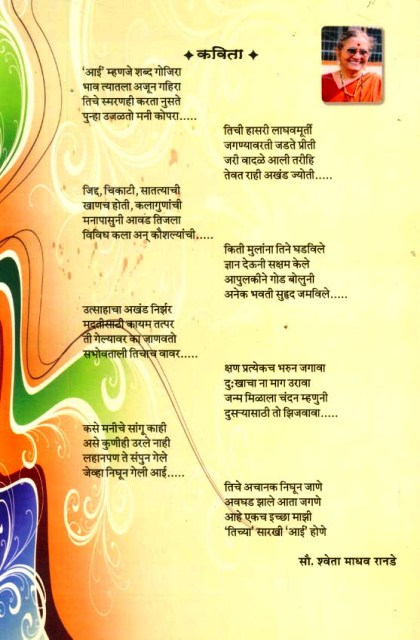 ✦ कविता ✦
'आई' म्हणजे शब्द गोजिरा
भाव त्यातला अजून गहिरा
तिचे स्मरणही करता नुसते
पुन्हा उजळतो मनी कोपरा.....
तिची हासरी लाघवमूर्ती
जगण्यावरती जडते प्रीती
जरी वादळे आली तरीहि
तेवत राही अखंड ज्योती.....
जिद्द, चिकाटी, सातत्याची
खाणच होती, कलागुणांची
मनापासुनी आवड तिजला
विविध कला अन् कौशल्यांची.....
किती मुलांना तिने घडविले
ज्ञान देऊनी सक्षम केले
आपुलकीने गोड बोलुनी
अनेक भवती सुहृद जमविले.....
उत्साहाचा अखंड निर्झर
मदतीसाठी कायम तत्पर
ती गेल्यावर का जाणवतो
सभोवताली तिचाच वावर.....
क्षण प्रत्येकच भरुन जगावा
दु:खाचा ना माग उरावा
जन्म मिळाला चंदन म्हणुनी
दुसऱ्यासाठी तो झिजवावा.....
कसे मनीचे सांगू काही
असे कुणीही उरले नाही
लहानपण ते संपुन गेले
जेव्हा निघून गेली आई.....
तिचे अचानक निघून जाणे
अवघड झाले आता जगणे
आहे एकच इच्छा माझी
'तिच्या' सारखी 'आई' होणे
सौ. श्वेता माधव रानडे